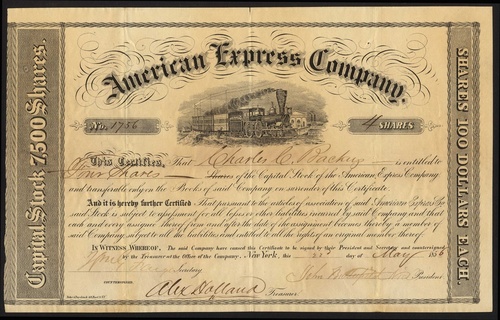 American Express Company.
Capital Stock 7500 Shares.
SHARES 100 DOLLARS EACH.
No. 1756
4 SHARES
This Certifies, That Charles C. Backus is entitled to
Four Shares Shares of the Capital Stock of the American Express Company
and transferable only on the Books of said Company on surrender of this Certificate.
And it is hereby further Certified That pursuant to the articles of association of said American Express Co.
said Stock is subject to assessment for all losses or other liabilities incurred by said Company and that
each and every assignee thereof from and after the date of the assignment becomes thereby a member of
said Company subject to all the liabilities and entitled to all the rights of an original member thereof.
In Witness Whereof, The said Company have caused this Certificate to be signed by their President and Secretary and countersigned
by the Treasurer at the Office of the Company, New York, this day of May 1856
Secretary
President
COUNTERSIGNED.
Alex Holland Treasurer.